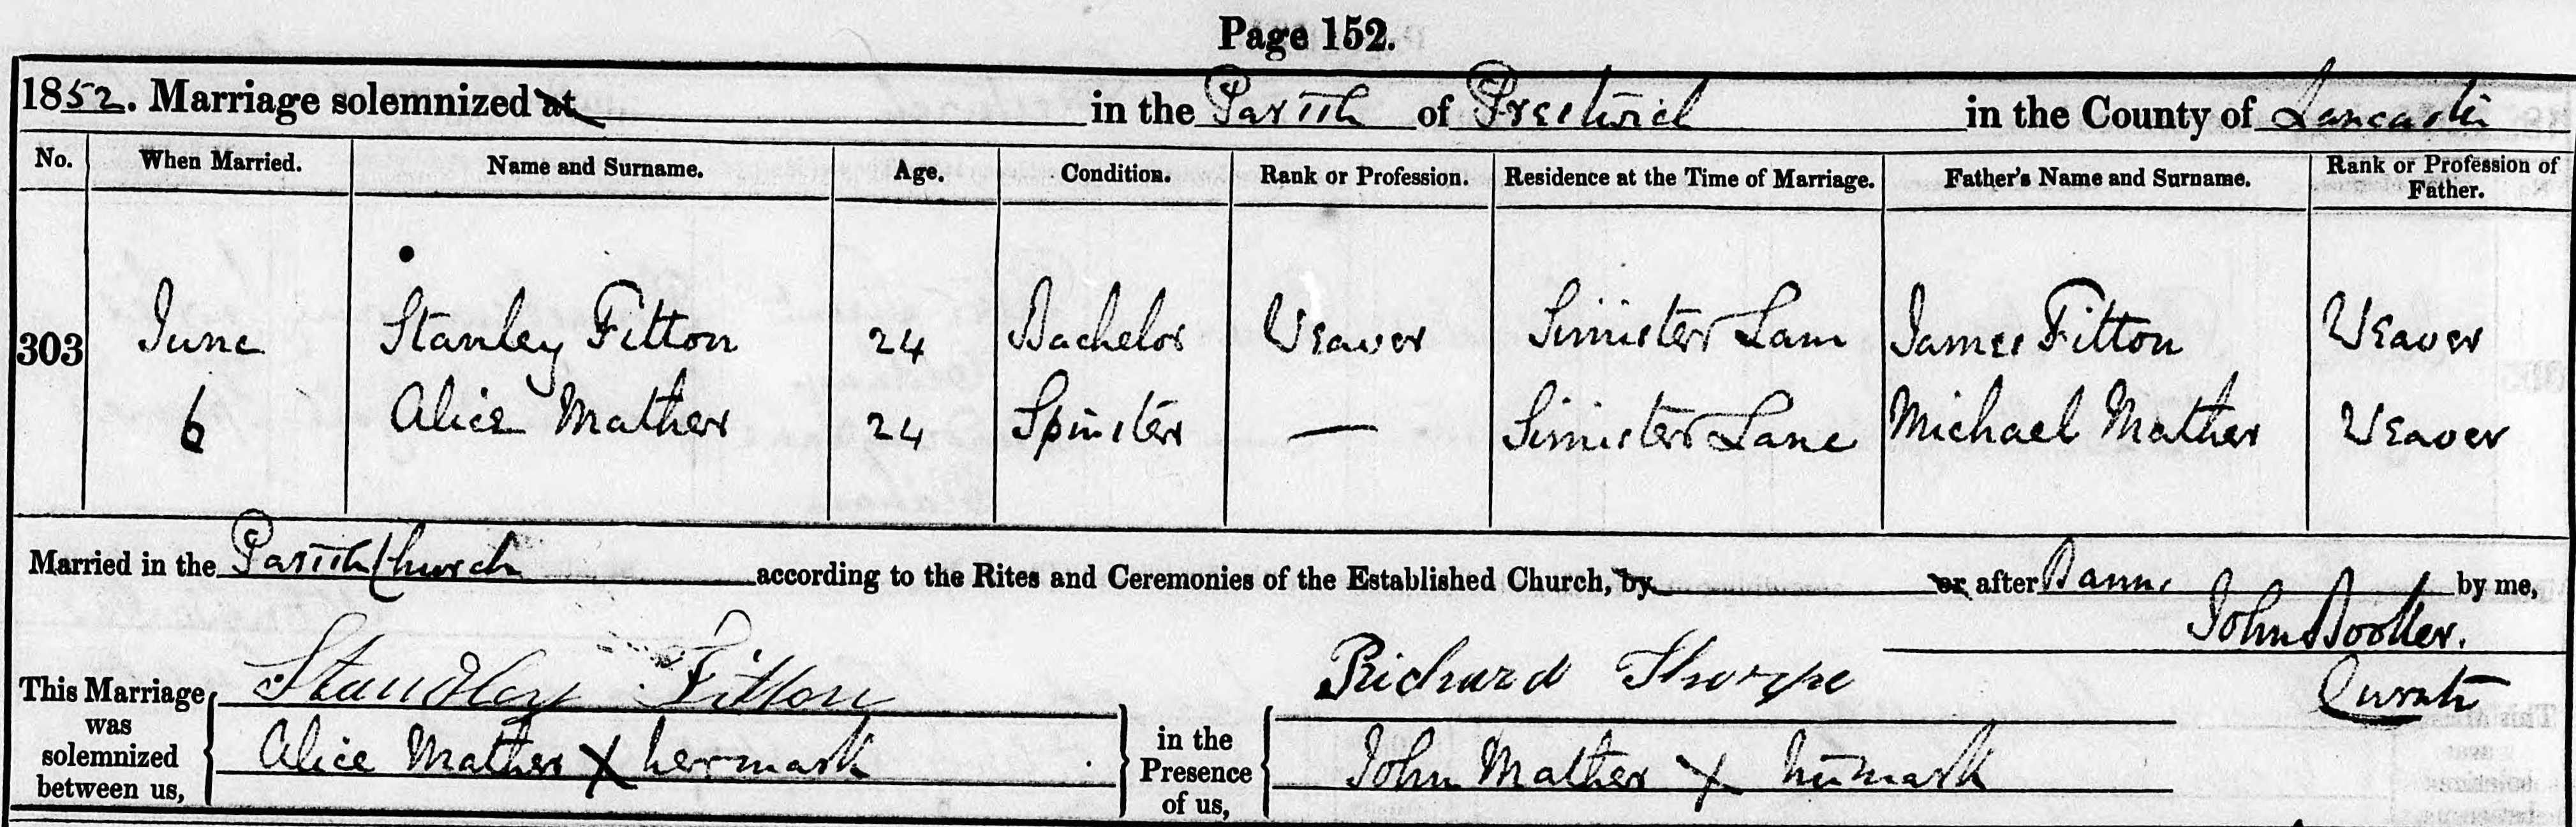 Page 152.
1852. Marriage solemnized at in the Parish of Prestwich in the County of Lancaster
No. When Married. Name and Surname. Age. Condition. Rank or Profession. Residence at the Time of Marriage. Father's Name and Surname. Rank or Profession of Father.
303 June Stanley Fitton 24 Bachelor Weaver Simister Lane James Fitton Weaver
6 Alice Mather 24 Spinster — Simister Lane Michael Mather Weaver
Married in the Parish Church according to the Rites and Ceremonies of the Established Church, by or after Banns by me,
John Booker.
Curate
This Marriage was solemnized between us,
Standley Fitton
Alice Mather X her mark
in the Presence of us,
Richard Thorpe
John Mather X his mark